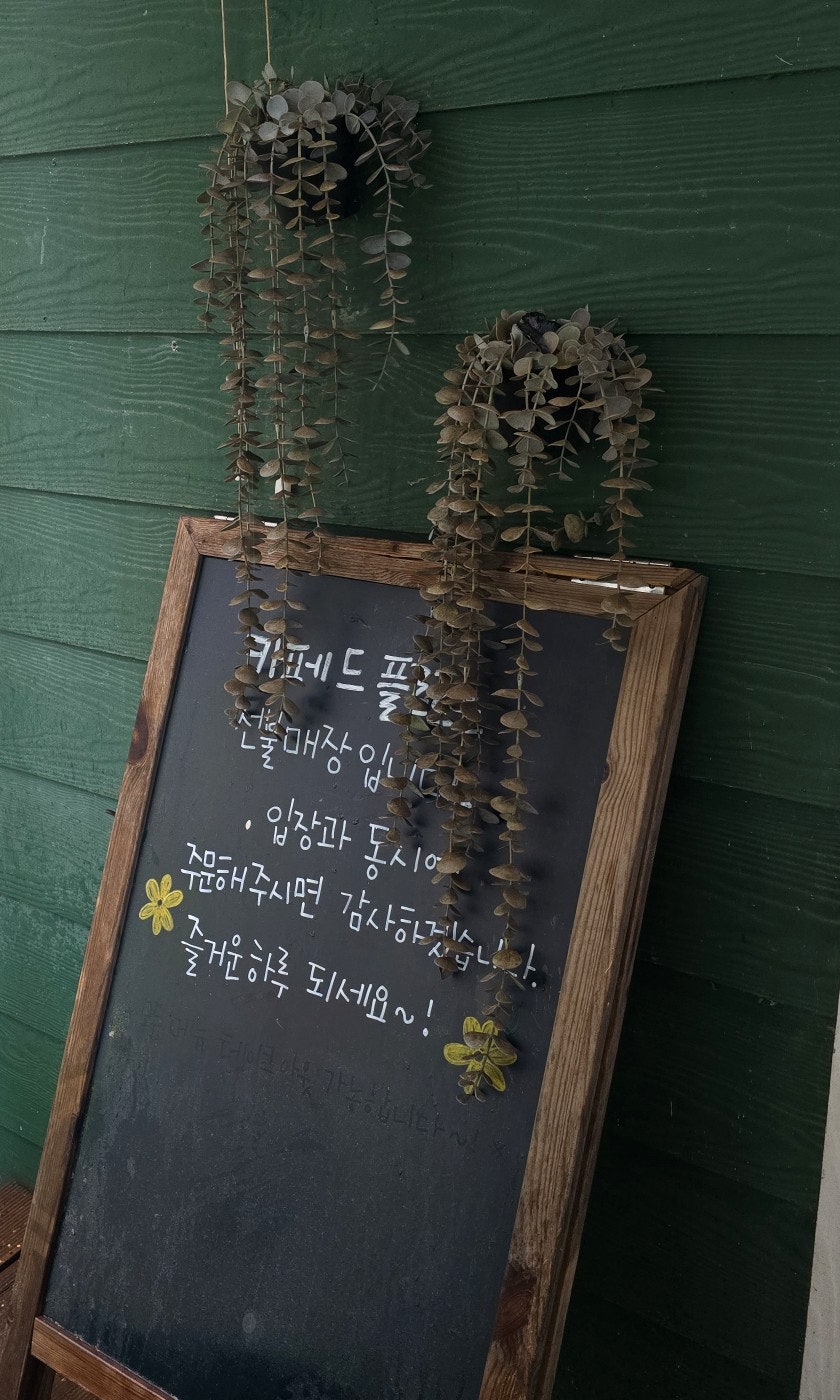 카페드
선불매장입니다
입장과 동시에
주문해주시면 감사하겠습니다.
즐거운하루 되세요~!
가능합니다~!